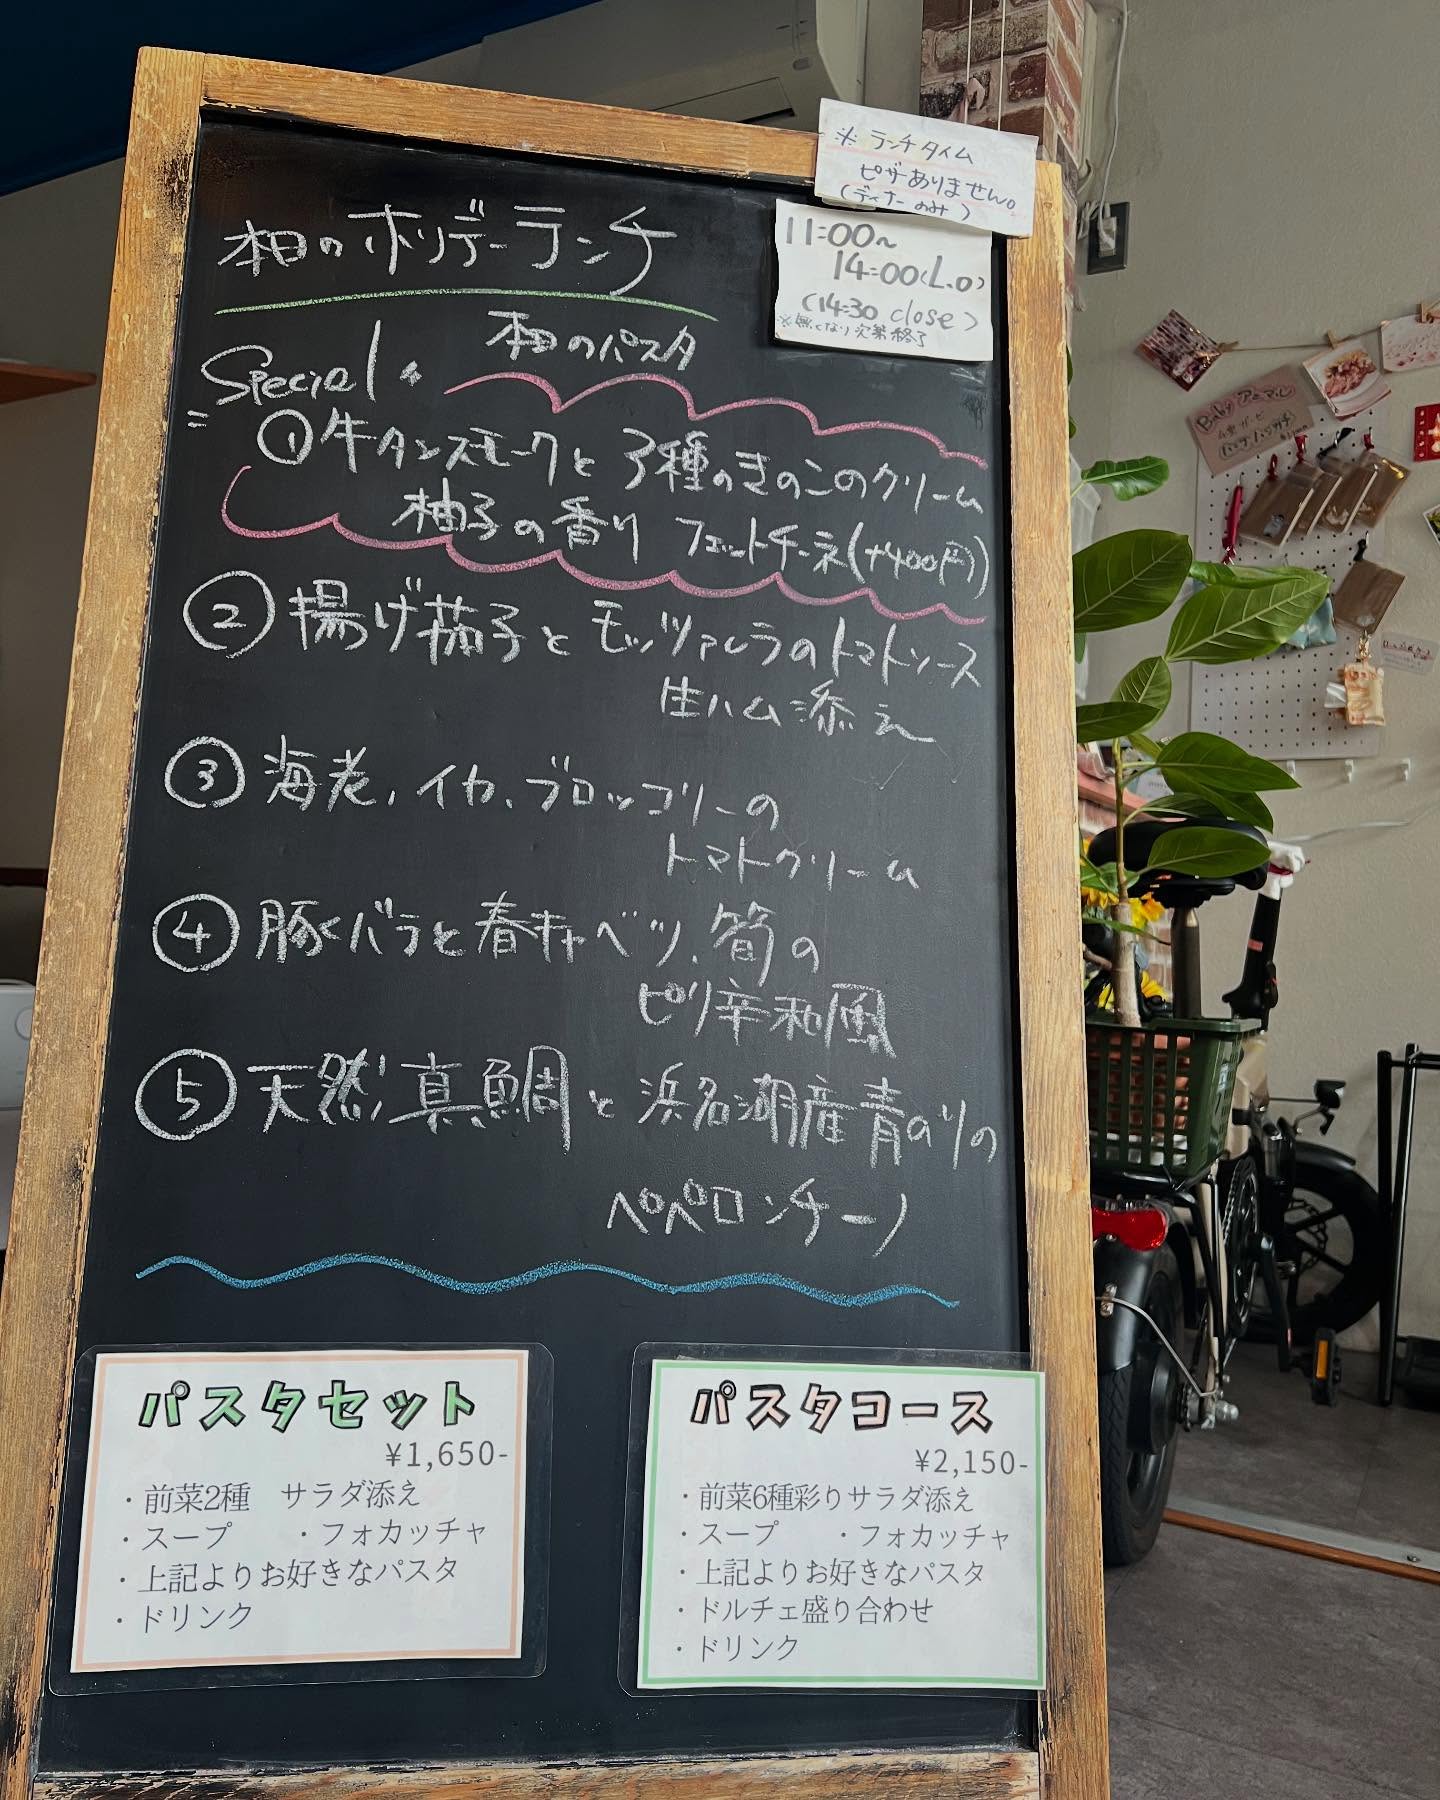 ※ ランチタイム
ピザありません。
(ディナーのみ)
11:00~
14:00(L.O)
(14:30 close)
※無くなり次第終了
本日のホリデーランチ
本日のパスタ
Special
①牛タンスモークと3種のきのこのクリーム
柚子の香り フェットチーネ(+400円)
②揚げ茄子とモッツァレラのトマトソース
生ハム添え
③海老、イカ、ブロッコリーの
トマトクリーム
④豚バラと春キャベツ、筍の
ピリ辛和風
⑤天然真鯛と浜名湖産青のりの
ペペロンチーノ
パスタセット
¥1,650-
・前菜2種 サラダ添え
・スープ ・フォカッチャ
・上記よりお好きなパスタ
・ドリンク
パスタコース
¥2,150-
・前菜6種彩りサラダ添え
・スープ ・フォカッチャ
・上記よりお好きなパスタ
・ドルチェ盛り合わせ
・ドリンク
Baby アニマル